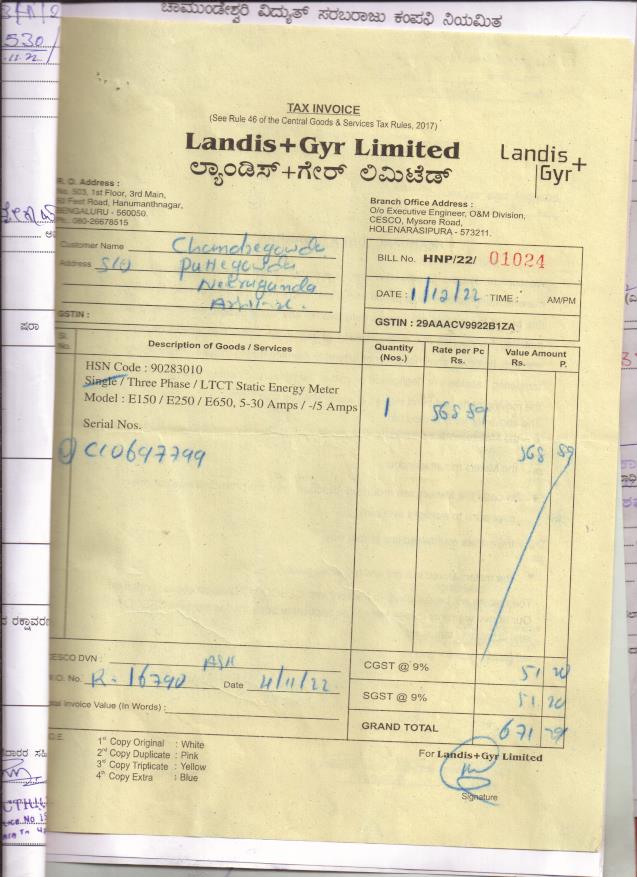 ಚಾಮುಂಡೇಶ್ವರಿ ವಿದ್ಯುತ್ ಸರಬರಾಜು ಕಂಪನಿ ನಿಯಮಿತ
530
TAX INVOICE
(See Rule 46 of the Central Goods & Services Tax Rules, 2017)
Landis+Gyr Limited
ಲ್ಯಾಂಡಿಸ್+ಗೇರ್ ಲಿಮಿಟೆಡ್
Landis+
Gyr
R. O. Address :
No. 503, 1st Floor, 3rd Main,
Feet Road, Hanumanthnagar,
BENGALURU - 560050.
Ph.: 080-26678515
Branch Office Address :
O/o Executive Engineer, O&M Division,
CESCO, Mysore Road,
HOLENARASIPURA - 573211.
Customer Name Chandregowda
Address S/O Puttegowda
GSTIN :
BILL No. HNP/22/ 01024
DATE : 1/12/22 TIME : AM/PM
GSTIN : 29AAACV9922B1ZA
Sl. No. Description of Goods / Services Quantity (Nos.) Rate per Pc Rs. Value Amount Rs. P.
HSN Code : 90283010
Single / Three Phase / LTCT Static Energy Meter
Model : E150 / E250 / E650, 5-30 Amps / -/5 Amps 1 568 89
Serial Nos.
C10697799 568 89
CESCO DVN :
R.O. No. R-16790 Date 4/11/22
Invoice Value (In Words) :
CGST @ 9% 51 20
SGST @ 9% 51 20
GRAND TOTAL 671 29
1st Copy Original : White
2nd Copy Duplicate : Pink
3rd Copy Triplicate : Yellow
4th Copy Extra : Blue
For Landis+Gyr Limited
Signature
ಷರಾ